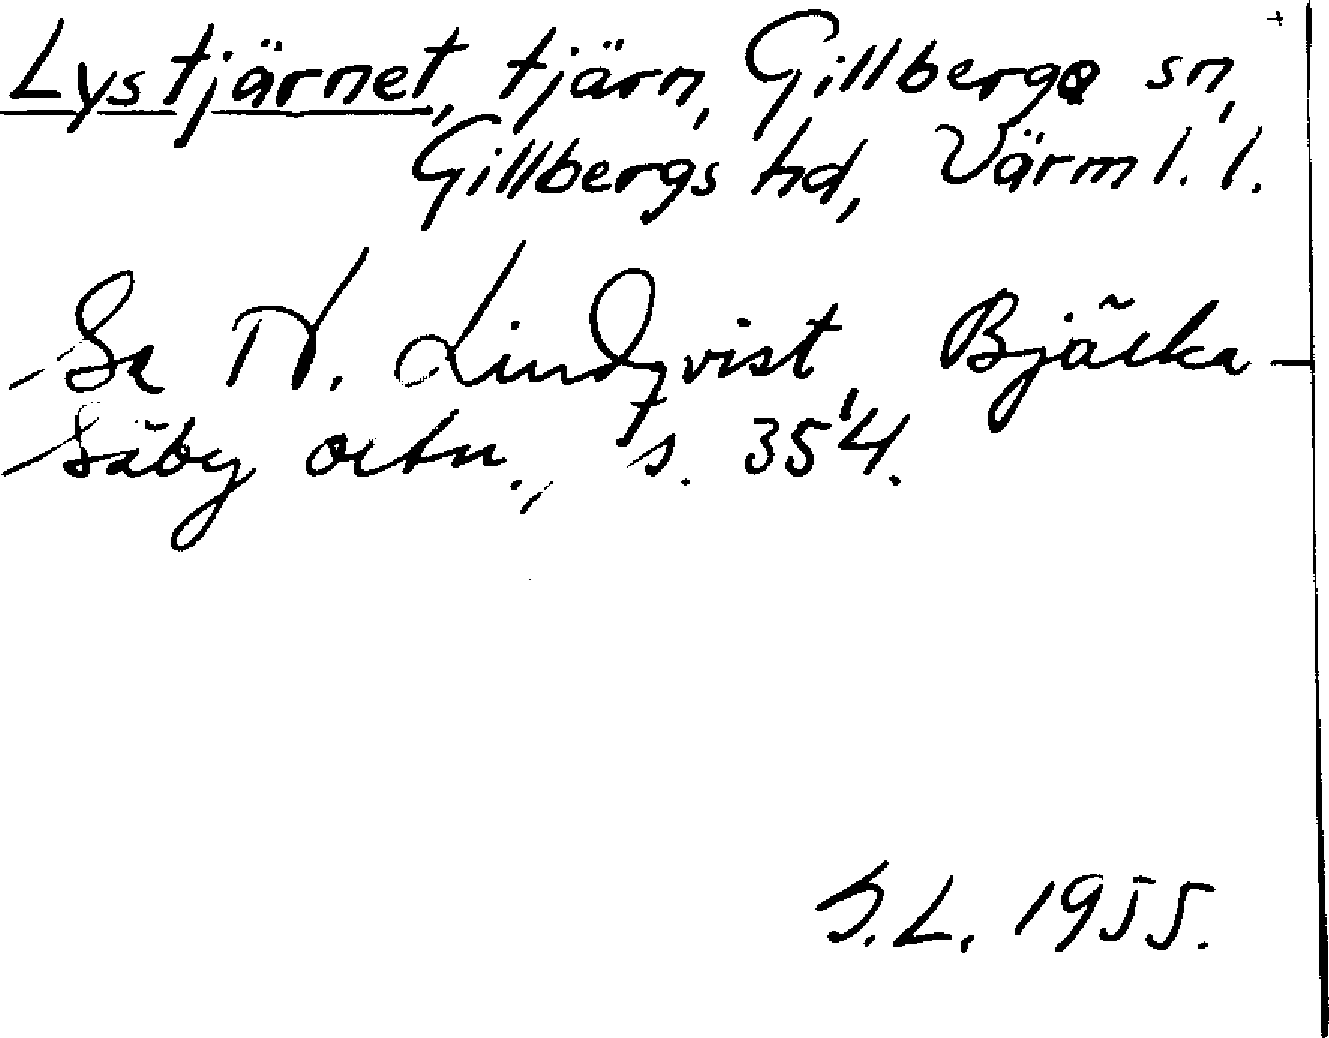 Lystjärnet, tjärn, Gillberga sn,
Gillbergs hd, Värml. l.
Se N. Lindqvist, Bjärka-
Säby ortn., s. 354.
S.L. 1955.